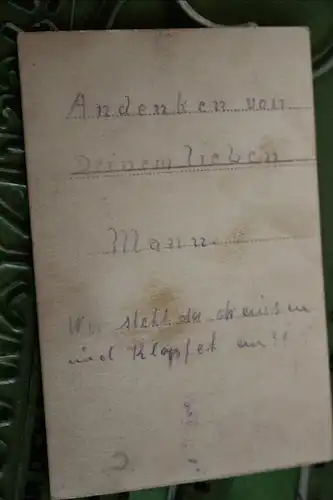 Andenken von
Deinem lieben
Mann.
Wer steht da draussen
und Klopfet an!!
2.